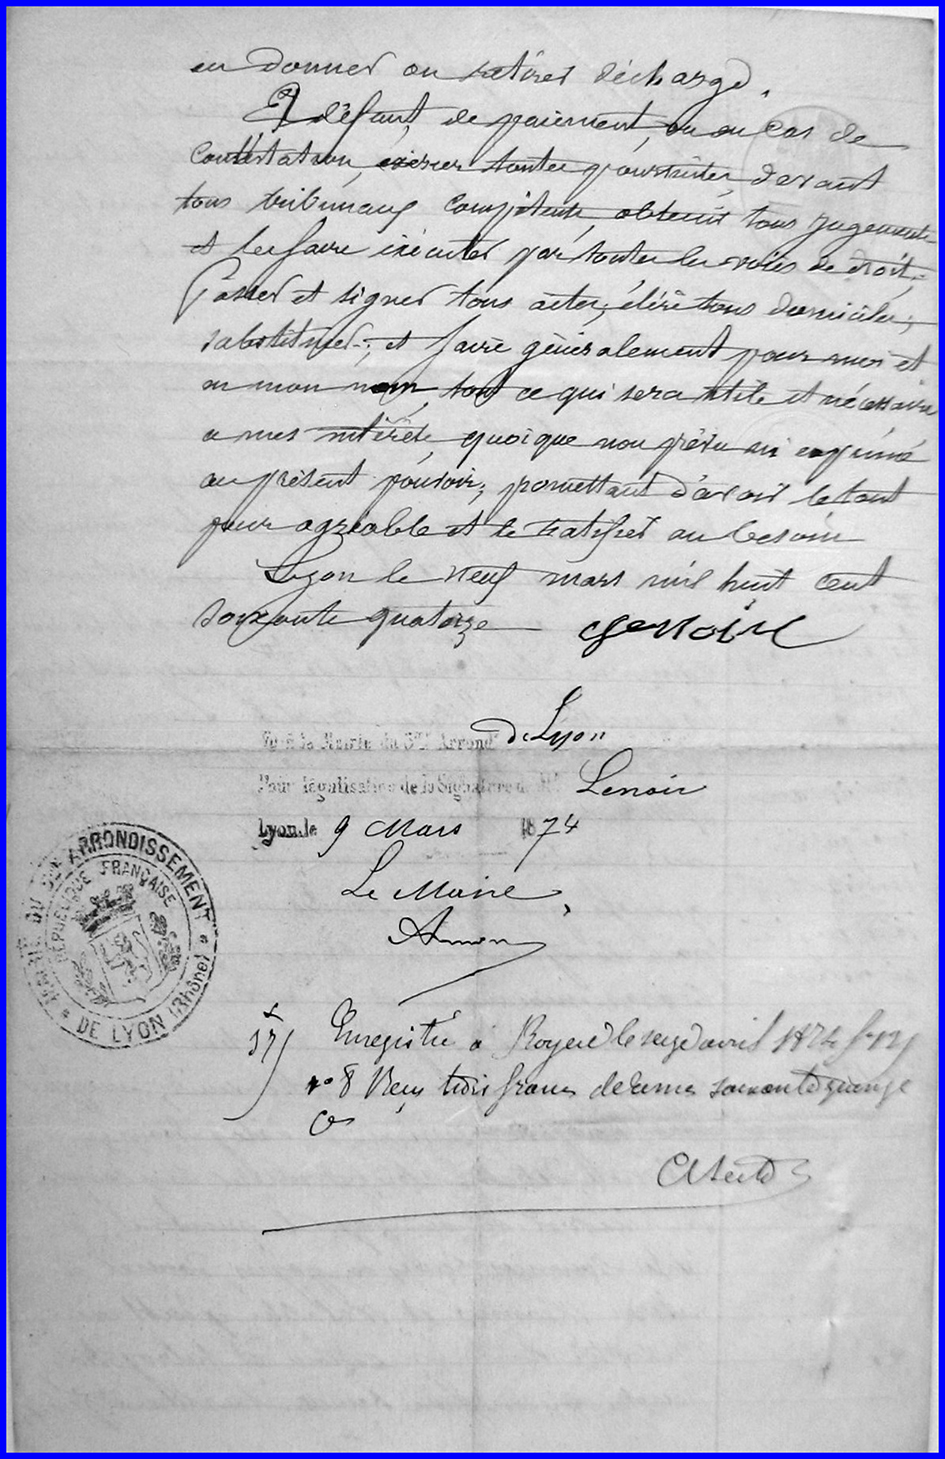 en donner ou retirer décharge.
A défaut de paiement, ou en cas de
contestation, exercer toutes poursuites devant
tous tribunaux compétents, obtenir tous jugements
et les faire exécuter par toutes les voies de droit,
Passer et signer tous actes, élire tous domiciles,
substituer, et faire généralement pour moi et
en mon nom, tout ce qui sera utile et nécessaire
a mes intérêts, quoique non prévu ni exprimé
au présent pouvoir; promettant d'avoir le tout
pour agréable et le ratifier au besoin
Lyon le neuf mars mil huit cent
soixante quatorze
Vu à la Mairie du 3me Arrondt de Lyon
Pour légalisation de la Signature de Mr Lenoir
Lyon, le 9 Mars 1874
Le Maire,
MAIRIE DU 3ME ARRONDISSEMENT
DE LYON (Rhône)
RÉPUBLIQUE FRANÇAISE
Enregistré à le seize avril 1874 fo
no 8 Reçu trois francs decimes soixante quinze